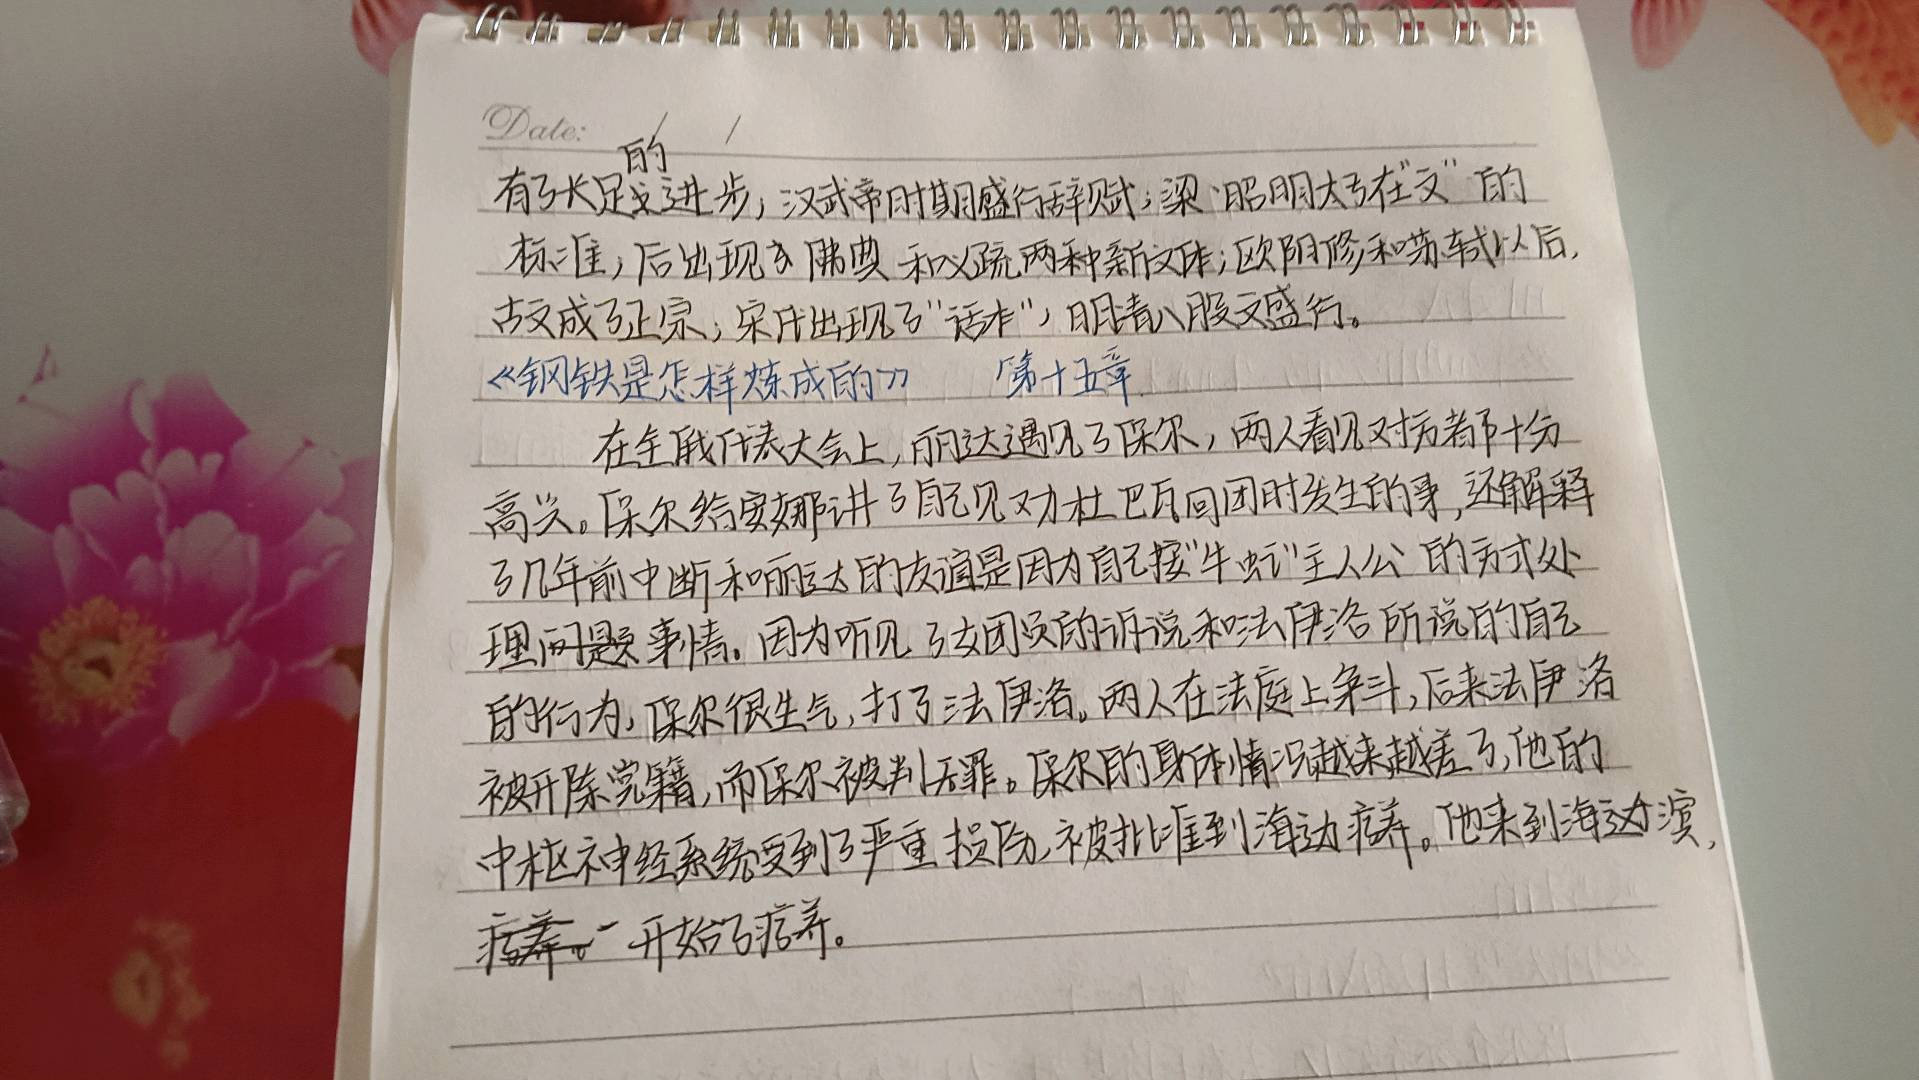 Date: / /
有了长足的进步；汉武帝时期盛行辞赋；梁·昭明太子在“文”的
标准，后出现了佛典和义疏两种新文体；欧阳修和苏轼以后，
古文成了正宗；宋代出现了“话本”，明清八股文盛行。
《钢铁是怎样炼成的》 第十五章
在全俄代表大会上，丽达遇见了保尔，两人看见对方都十分
高兴。保尔给安娜讲了自己见对杜巴瓦回团时发生的事，还解释
了几年前中断和丽达的友谊是因为自己按“牛虻”主人公的方式处
理问题事情。因为听见了女团员的诉说和法伊洛所说的自己
的行为，保尔很生气，打了法伊洛。两人在法庭上争斗，后来法伊洛
被开除党籍，而保尔被判无罪。保尔的身体情况越来越差了，他的
中枢神经系统受到了严重损伤，被批准到海边疗养。他来到海边滨，
疗养。开始了疗养。